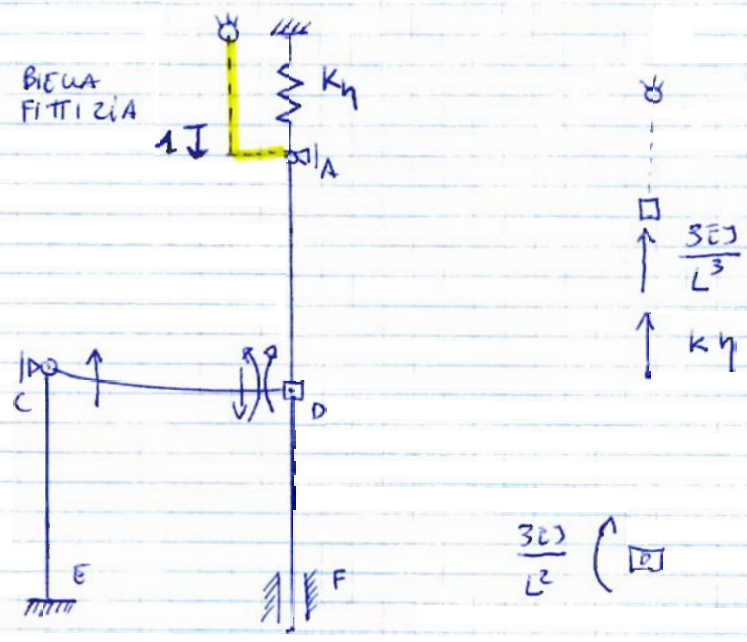 BIELLA
FITTIZIA
Kη
1
A
3EJ
L³
Kη
C
D
3EJ
L²
E
F